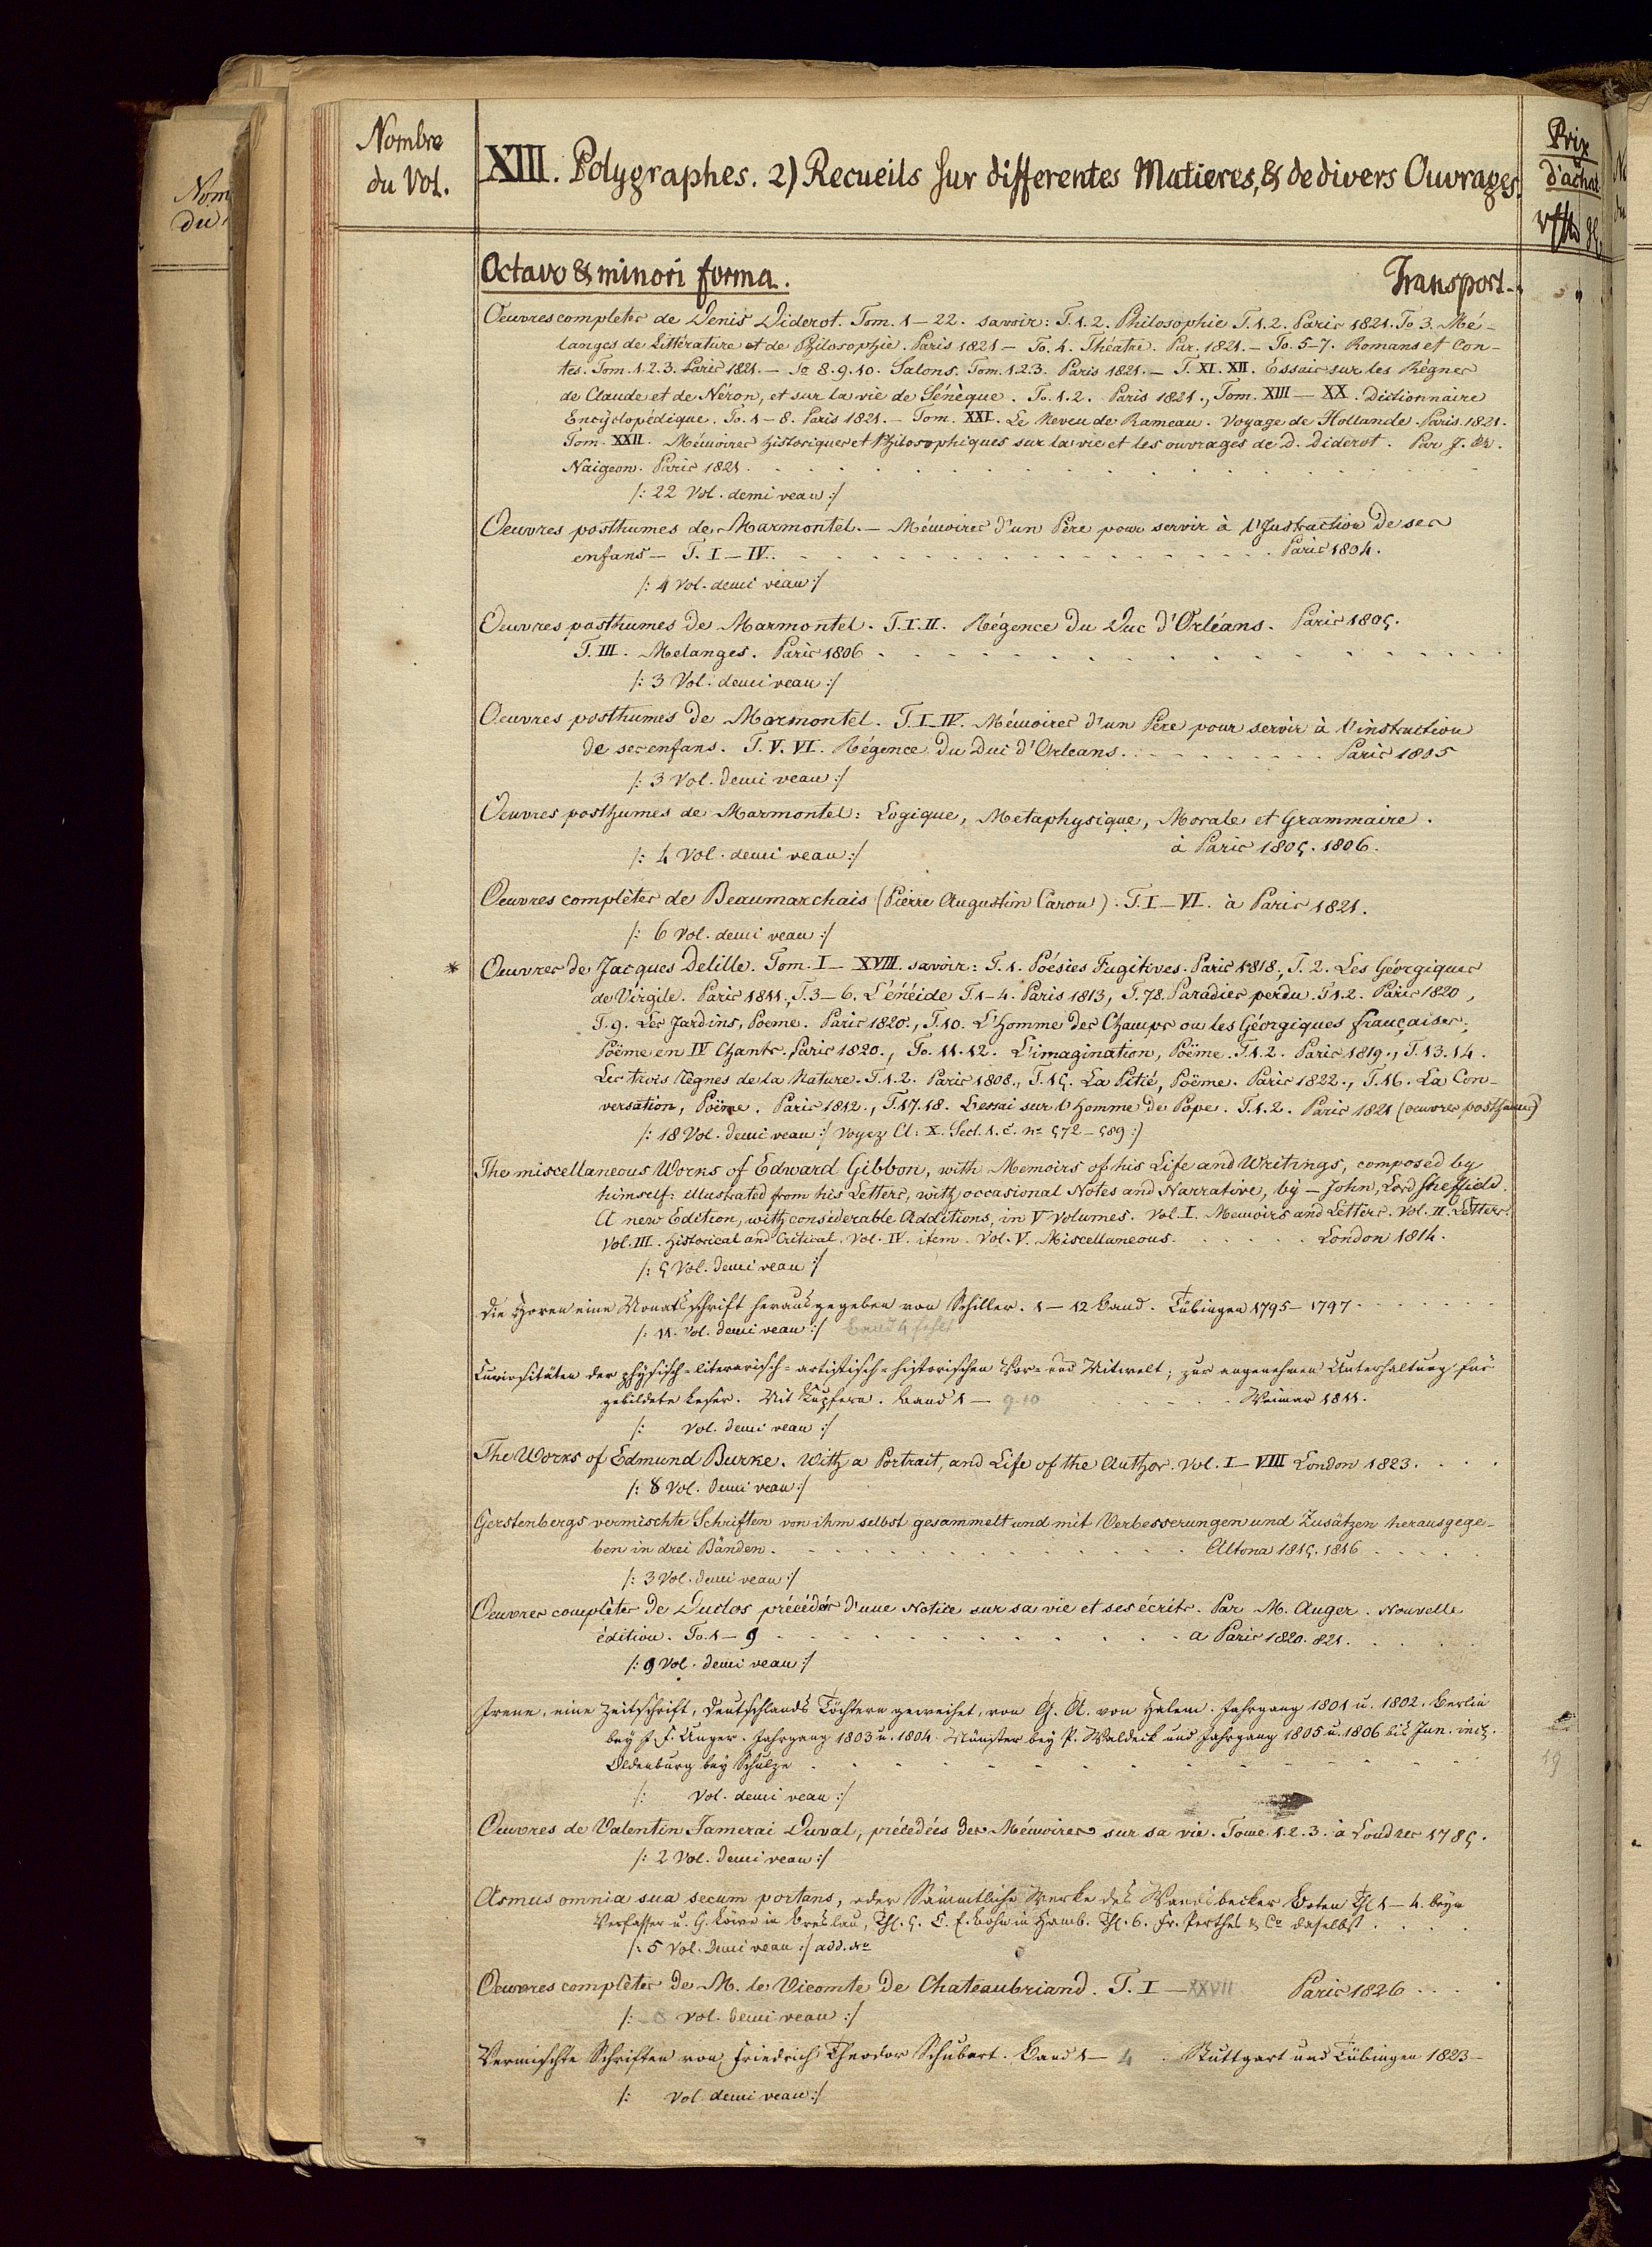 Nombre
du Vol.
XIII. Polygraphes. 2) Recueils sur differentes Matieres, & de divers Ouvrages.
Prix
d'achat
Octavo & minori forma.
Transport.
Oeuvres completes de Denis Diderot. Tom. 1–22. savoir: T. 1. 2. Philosophie T. 1. 2. Paris 1821. To 3. Mé-
langes de Littérature et de Philosophie. Paris 1821 – To. 4. Théatre. Par. 1821. – To. 5–7. Romans et Con-
tes. Tom. 1. 2. 3. Paris 1821. – To 8. 9. 10. Salons. Tom. 1. 2. 3. Paris 1821. – T. XI. XII. Essais sur les Règnes
de Claude et de Néron, et sur la vie de Sénèque. To. 1. 2. Paris 1821., Tom. XIII – XX. Dictionnaire
Encyclopédique. To. 1–8. Paris 1821. – Tom. XXI. Le Neveu de Rameau. Voyage de Hollande. Paris. 1821.
Tom. XXII. Mémoires historiques et Philosophiques sur la vie et les ouvrages de D. Diderot. Par J. A.
Naigeon. Paris 1821.
/: 22 Vol. demi veau :/
Oeuvres posthumes de Marmontel. – Mémoires d'un Père pour servir à l'Instruction de ses
enfans – T. I – IV. Paris 1804.
/: 4 Vol. demi veau :/
Oeuvres posthumes de Marmontel. T. I. II. Régence du Duc d'Orléans. Paris 1805.
T. III. Melanges. Paris 1806
/: 3 Vol. demi veau :/
Oeuvres posthumes de Marmontel. T. I–IV. Mémoires d'un Père pour servir à l'instruction
de ses enfans. T. V. VI. Régence du Duc d'Orleans. Paris 1805
/: 3 Vol. demi veau :/
Oeuvres posthumes de Marmontel: Logique, Metaphysique, Morale et Grammaire.
à Paris 1805. 1806.
/: 4 Vol. demi veau :/
Oeuvres complètes de Beaumarchais (Pierre Augustin Caron). T. I – VI. à Paris 1821.
/: 6 Vol. demi veau :/
* Oeuvres de Jacques Delille. Tom. I – XVIII. savoir: T. 1. Poésies Fugitives. Paris 1818., T. 2. Les Géorgiques
de Virgile. Paris 1811., T. 3–6. L'énéide T. 1–4. Paris 1813, T. 7.8. Paradies perdu. T. 1. 2. Paris 1820,
T. 9. Les Jardins, Poeme. Paris 1820., T. 10. L'Homme des Champs ou les Géorgiques françaises,
Poëme en IV Chants. Paris 1820., To. 11. 12. L'imagination, Poëme. T. 1. 2. Paris 1819., T. 13. 14.
Les trois Règnes de la Nature. T. 1. 2. Paris 1808., T. 15. La Pitié, Poëme. Paris 1822., T. 16. La Con-
versation, Poëme. Paris 1812., T. 17. 18. L'essai sur l'Homme de Pope. T. 1. 2. Paris 1821 (oeuvres posthumes)
/: 18 Vol. demi veau :/ voyez Cl: X. Sect. 1. c. No 572 – 589 :/
The miscellaneous Works of Edward Gibbon, with Memoirs of his Life and Writings, composed by
himself: illustrated from his Letters, with occasional Notes and Narrative, by – John, Lord Sheffield.
A new Edition, with considerable Additions, in V Volumes. Vol. I. Memoirs and Letters. Vol. II. Letters.
Vol. III. Historical and Critical. Vol. IV. item. Vol. V. Miscellaneous. London 1814.
/: 5 Vol. demi veau :/
Die Horen eine Monatsschrift herausgegeben von Schiller. 1 – 12 Band. Tübingen 1795 – 1797.
/: 11. Vol. demi veau :/ Band 4 fehlt
Curiositäten der physisch-literarisch-artistisch-historischen Vor- und Mitwelt; zur angenehmen Unterhaltung für
gebildete Leser. Mit Kupfern. Band 1 – 9. 10 Weimar 1811.
/: Vol. demi veau :/
The Works of Edmund Burke. With a Portrait, and Life of the Author. Vol. I – VIII London 1823.
/: 8 Vol. demi veau :/
Gerstenbergs vermischte Schriften von ihm selbst gesammelt und mit Verbesserungen und Zusätzen herausgege-
ben in drei Bänden. Altona 1815. 1816
/: 3 Vol. demi veau :/
Oeuvres complètes de Duclos précédés d'une Notice sur sa vie et ses écrits. Par M. Auger. Nouvelle
édition. To. 1 – 9 a Paris 1820. 821.
/: 9 Vol. demi veau :/
Irene, eine Zeitschrift, Deutschlands Töchtern geweihet, von G. A. von Halem. Jahrgang 1801 u. 1802. Berlin
bey J. F. Unger. Jahrgang 1803 u. 1804. Münster bey P. Waldeck und Jahrgang 1805 u. 1806 bis Jun. incl.
Oldenburg bey Schulze
19
/: Vol. demi veau :/
Oeuvres de Valentin Jamerai Duval, précédées des Mémoires sur sa vie. Tome 1. 2. 3. à Londres 1785.
/: 2 Vol. demi veau :/
Asmus omnia sua secum portans, oder Sämmtliche Werke des Wandsbecker Boten Thl. 1 – 4. beym
Verfasser u. G. Löwe in Breslau, Thl. 5. C. E. Bohn in Hamb. Thl. 6. Fr. Perthes & Co daselbst.
/: 5 Vol. demi veau :/ add. No
Oeuvres complètes de M. le Vicomte de Chateaubriand. T. I – XXVII Paris 1826
/: Vol. demi veau :/
Vermischte Schriften von Friedrich Theodor Schubert. Band 1 – 4. Stuttgart und Tübingen 1823 –
/: Vol. demi veau :/